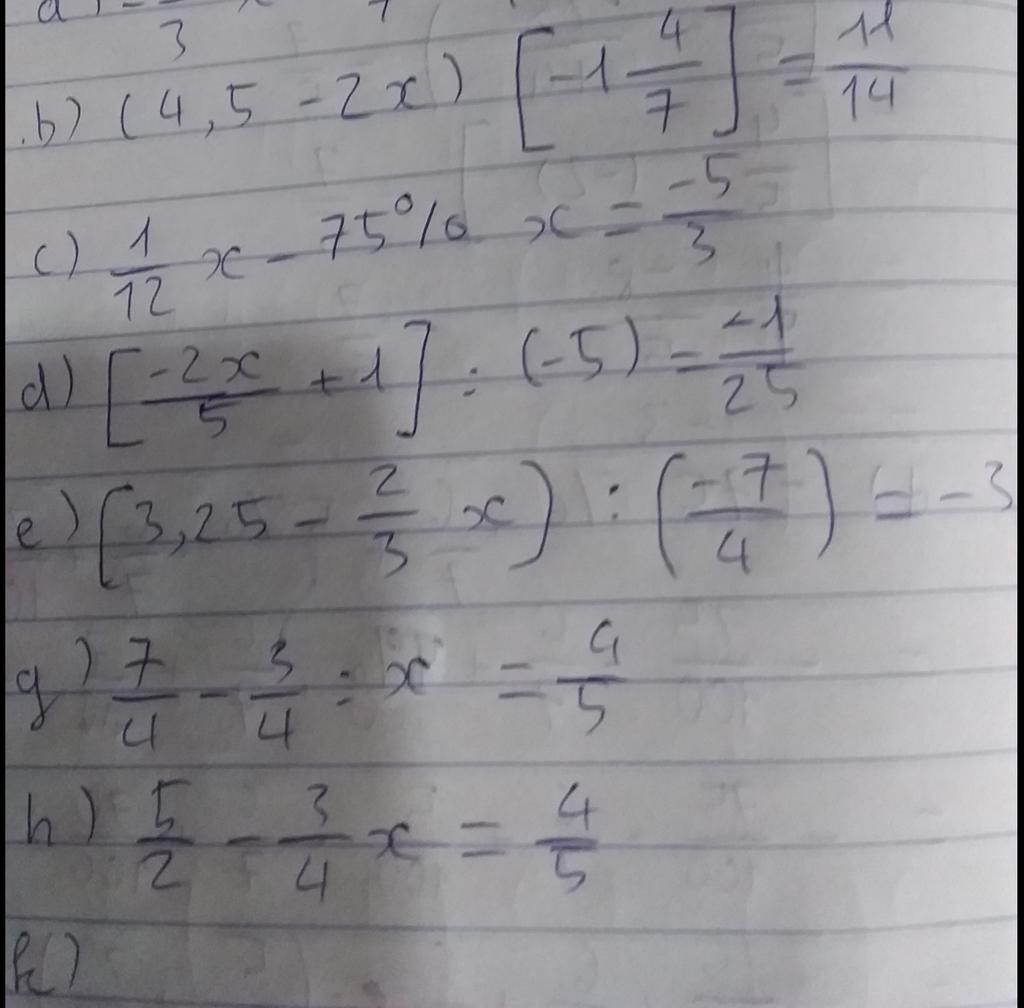 b) (4,5 - 2x) [-1 4/7] = 11/14
c) 1/12 x - 75% x = -5/3
d) [-2x/5 + 1] : (-5) = -1/25
e) [3,25 - 2/3 x) : (-7/4) = -3
g) 7/4 - 3/4 : x = 4/5
h) 5/2 - 3/4 x = 4/5
k)